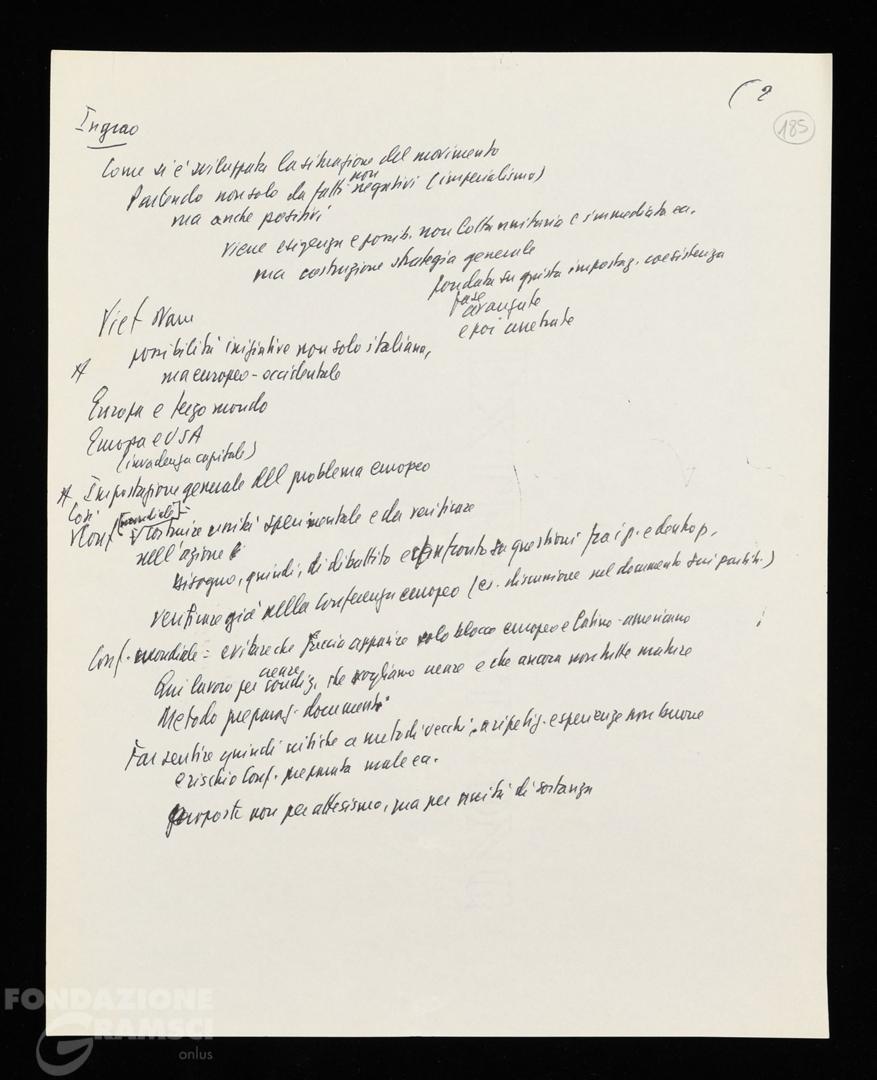 ( 2
185
Ingrao
Come si è sviluppata la situazione del movimento
Partendo non solo da fatti non negativi (imperialismo)
ma anche positivi
viene esigenza e possib. non lotta unitaria e immediata ecc.
ma costruzione strategia generale
fondata su giusta impostaz. coesistenza
fase
avanzate
e poi arretrate
Viet Nam
possibilità iniziative non solo italiana,
ma europeo-occidentale
Europa e terzo mondo
Europa e USA
(invadenza capitale)
Impostazione generale del problema europeo
Così
Conf [mondiale] = costruire unità sperimentale e da verificare
nell'azione
Bisogno, quindi, di dibattito e confronto su questioni fra i p. e dentro p.
verificare già nella Conferenza europea (es. discussione sul documento sui partiti)
Conf. mondiale = evitare che faccia apparire solo blocco europeo e latino-americano
Qui lavoro per creare condiz. che vogliamo creare e che ancora non tutte mature
Metodo preparaz. documenti
Far sentire quindi critiche a metodi vecchi, a ripetiz. esperienze non buone
e rischio Conf. preparata male ecc.
proposte non per attesismo, ma per unità di sostanza
FONDAZIONE
GRAMSCI
onlus